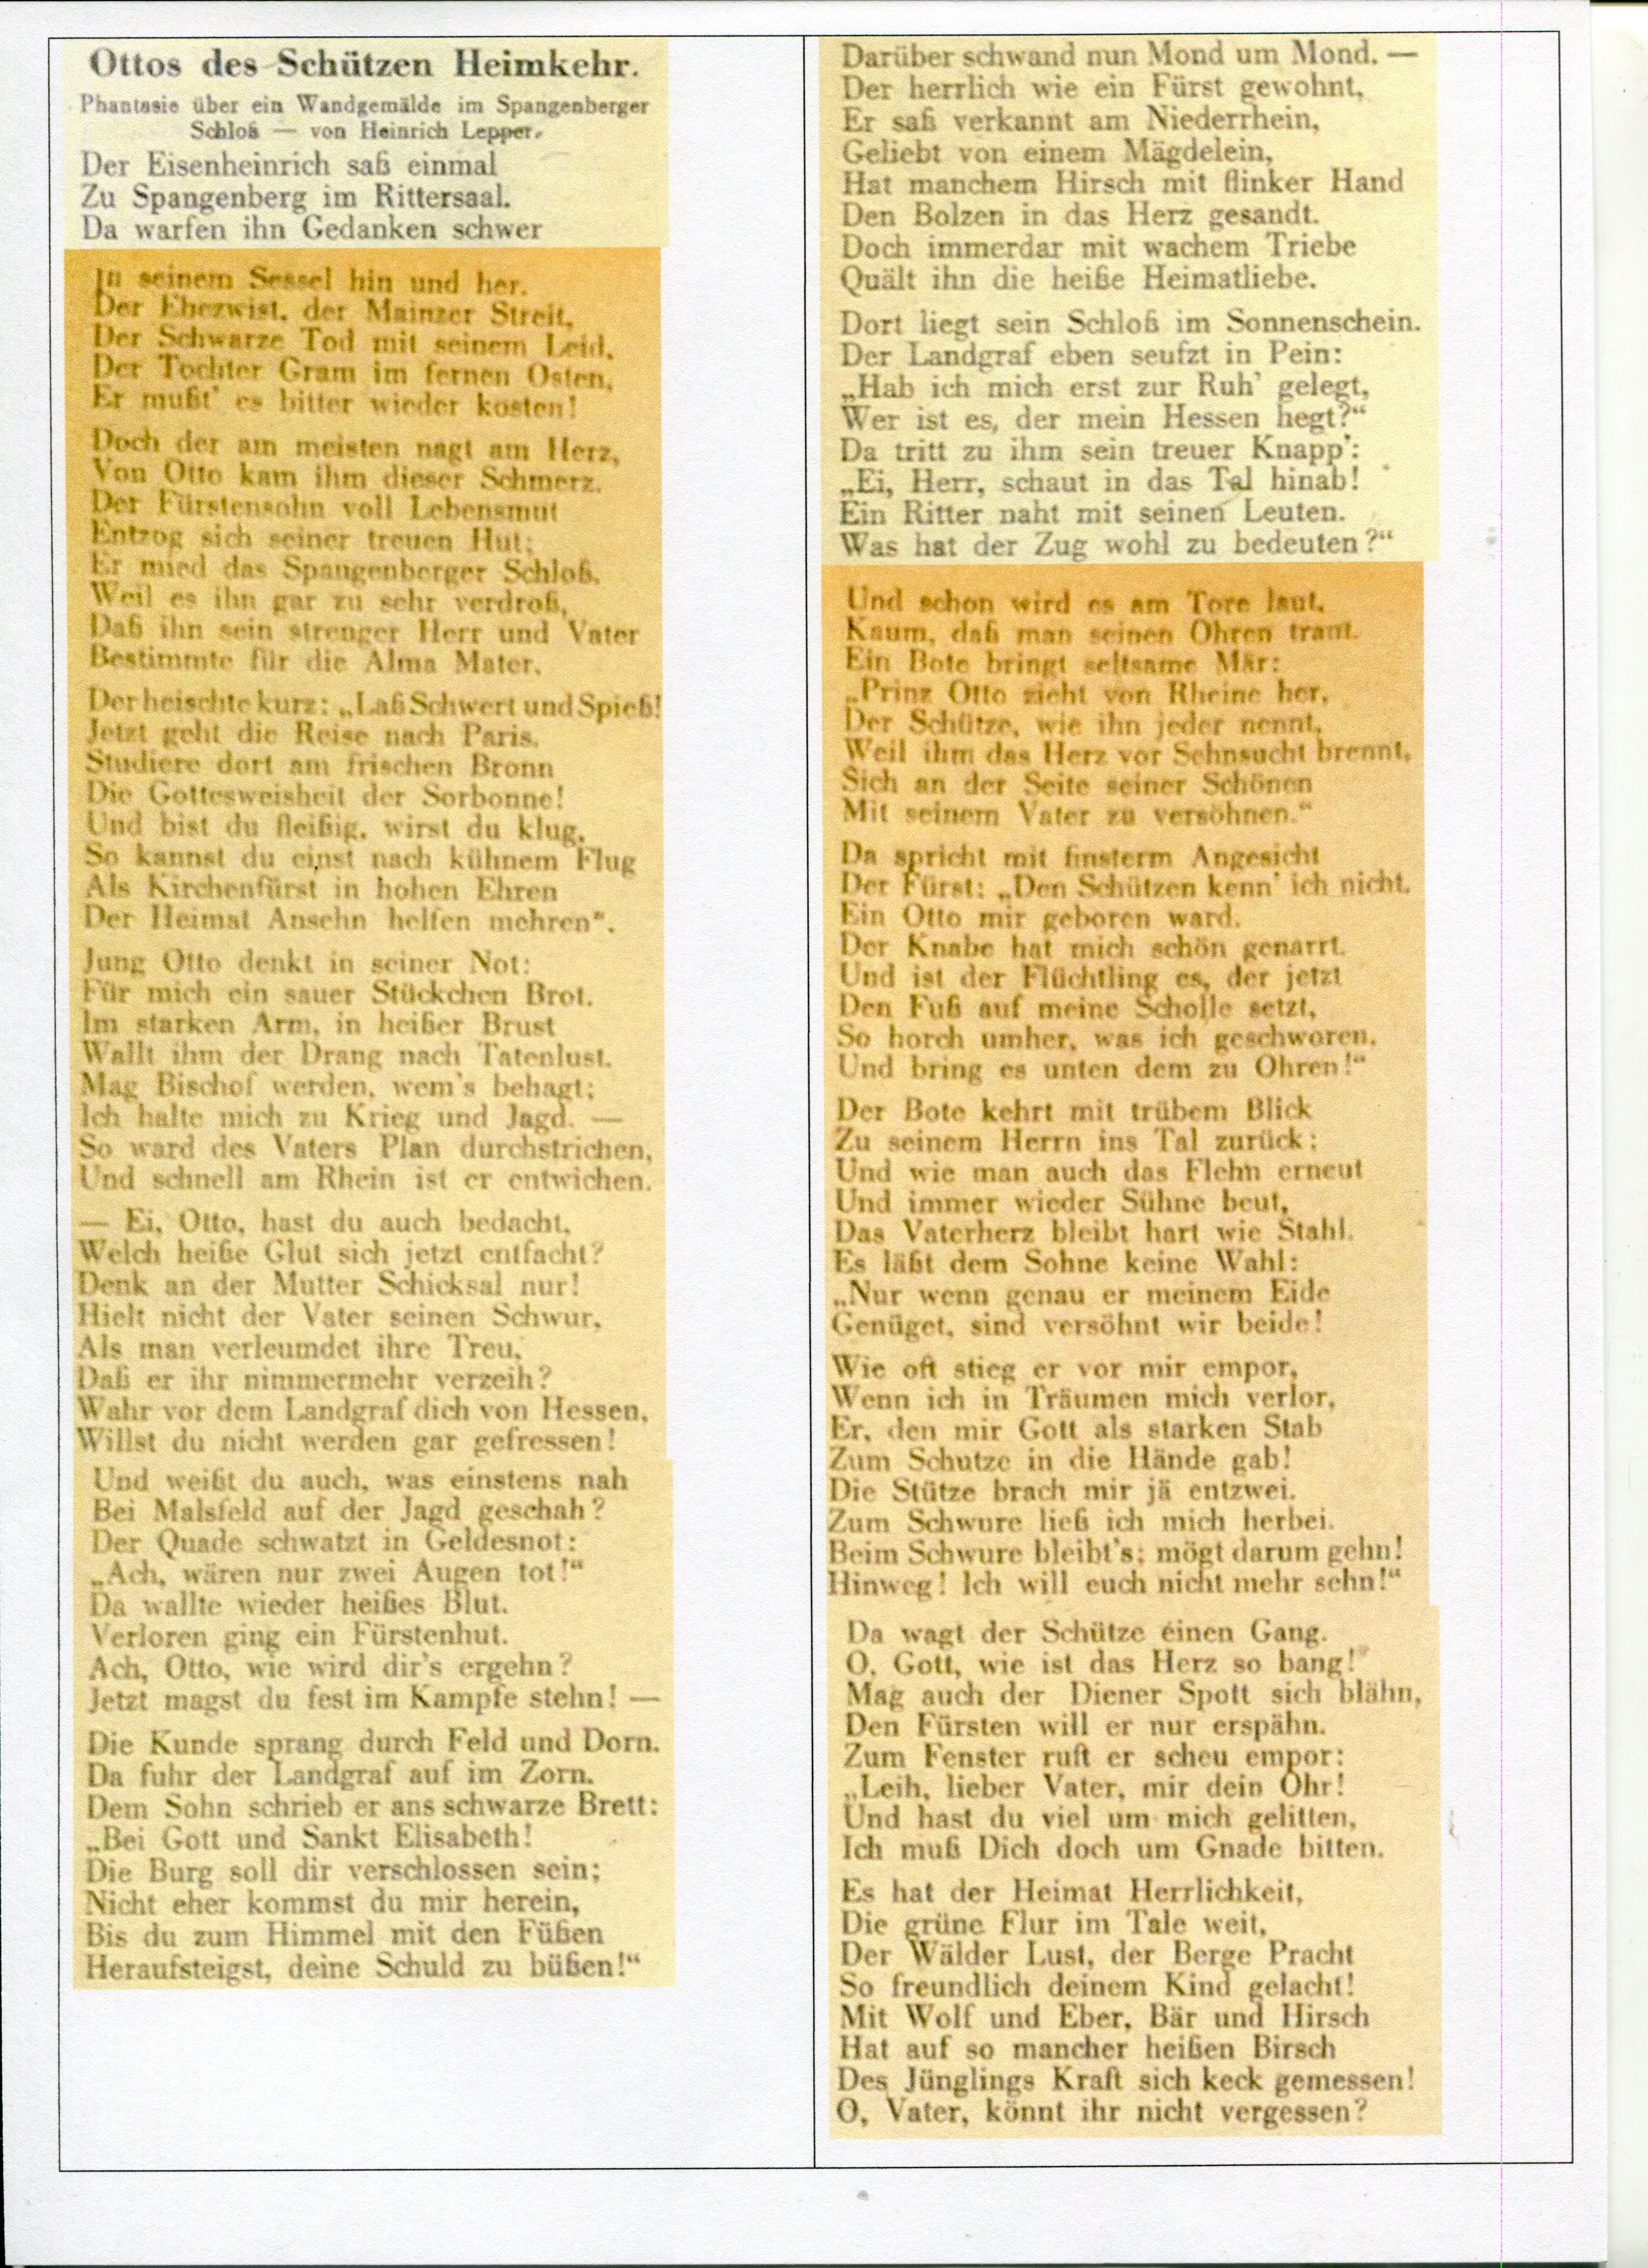 Ottos des Schützen Heimkehr.
Phantasie über ein Wandgemälde im Spangenberger
Schloß — von Heinrich Lepper.
Der Eisenheinrich saß einmal
Zu Spangenberg im Rittersaal.
Da warfen ihn Gedanken schwer
In seinem Sessel hin und her.
Der Ehezwist, der Mainzer Streit,
Der Schwarze Tod mit seinem Leid,
Der Tochter Gram im fernen Osten,
Er mußt' es bitter wieder kosten!
Doch der am meisten nagt am Herz,
Von Otto kam ihm dieser Schmerz.
Der Fürstensohn voll Lebensmut
Entzog sich seiner treuen Hut;
Er mied das Spangenberger Schloß,
Weil es ihn gar zu sehr verdroß,
Daß ihn sein strenger Herr und Vater
Bestimmte für die Alma Mater.
Der heischte kurz: „Laß Schwert und Spieß!
Jetzt geht die Reise nach Paris.
Studiere dort am frischen Bronn
Die Gottesweisheit der Sorbonne!
Und bist du fleißig, wirst du klug,
So kannst du einst nach kühnem Flug
Als Kirchenfürst in hohen Ehren
Der Heimat Ansehn helfen mehren“.
Jung Otto denkt in seiner Not:
Für mich ein sauer Stückchen Brot.
Im starken Arm, in heißer Brust
Wallt ihm der Drang nach Tatenlust.
Mag Bischof werden, wem's behagt;
Ich halte mich zu Krieg und Jagd. —
So ward des Vaters Plan durchstrichen,
Und schnell am Rhein ist er entwichen.
— Ei, Otto, hast du auch bedacht,
Welch heiße Glut sich jetzt entfacht?
Denk an der Mutter Schicksal nur!
Hielt nicht der Vater seinen Schwur,
Als man verleumdet ihre Treu,
Daß er ihr nimmermehr verzeih?
Wahr vor dem Landgraf dich von Hessen,
Willst du nicht werden gar gefressen!
Und weißt du auch, was einstens nah
Bei Malsfeld auf der Jagd geschah?
Der Quade schwatzt in Geldesnot:
„Ach, wären nur zwei Augen tot!“
Da wallte wieder heißes Blut.
Verloren ging ein Fürstenhut.
Ach, Otto, wie wird dir's ergehn?
Jetzt magst du fest im Kampfe stehn! —
Die Kunde sprang durch Feld und Dorn.
Da fuhr der Landgraf auf im Zorn.
Dem Sohn schrieb er ans schwarze Brett:
„Bei Gott und Sankt Elisabeth!
Die Burg soll dir verschlossen sein;
Nicht eher kommst du mir herein,
Bis du zum Himmel mit den Füßen
Heraufsteigst, deine Schuld zu büßen!“
Darüber schwand nun Mond um Mond. —
Der herrlich wie ein Fürst gewohnt,
Er saß verkannt am Niederrhein,
Geliebt von einem Mägdelein,
Hat manchem Hirsch mit flinker Hand
Den Bolzen in das Herz gesandt.
Doch immerdar mit wachem Triebe
Quält ihn die heiße Heimatliebe.
Dort liegt sein Schloß im Sonnenschein.
Der Landgraf eben seufzt in Pein:
„Hab ich mich erst zur Ruh' gelegt,
Wer ist es, der mein Hessen hegt?“
Da tritt zu ihm sein treuer Knapp':
„Ei, Herr, schaut in das Tal hinab!
Ein Ritter naht mit seinen Leuten.
Was hat der Zug wohl zu bedeuten?“
Und schon wird es am Tore laut.
Kaum, daß man seinen Ohren traut.
Ein Bote bringt seltsame Mär:
„Prinz Otto zieht von Rheine her,
Der Schütze, wie ihn jeder nennt,
Weil ihm das Herz vor Sehnsucht brennt,
Sich an der Seite seiner Schönen
Mit seinem Vater zu versöhnen.“
Da spricht mit finsterm Angesicht
Der Fürst: „Den Schützen kenn' ich nicht.
Ein Otto mir geboren ward.
Der Knabe hat mich schön genarrt.
Und ist der Flüchtling es, der jetzt
Den Fuß auf meine Scholle setzt,
So horch umher, was ich geschworen,
Und bring es unten dem zu Ohren!“
Der Bote kehrt mit trübem Blick
Zu seinem Herrn ins Tal zurück;
Und wie man auch das Flehn erneut
Und immer wieder Sühne beut,
Das Vaterherz bleibt hart wie Stahl.
Es läßt dem Sohne keine Wahl:
„Nur wenn genau er meinem Eide
Genüget, sind versöhnt wir beide!
Wie oft stieg er vor mir empor,
Wenn ich in Träumen mich verlor,
Er, den mir Gott als starken Stab
Zum Schutze in die Hände gab!
Die Stütze brach mir jä entzwei.
Zum Schwure ließ ich mich herbei.
Beim Schwure bleibt's; mögt darum gehn!
Hinweg! Ich will euch nicht mehr sehn!“
Da wagt der Schütze einen Gang.
O, Gott, wie ist das Herz so bang!
Mag auch der Diener Spott sich blähn,
Den Fürsten will er nur erspähn.
Zum Fenster ruft er scheu empor:
„Leih, lieber Vater, mir dein Ohr!
Und hast du viel um mich gelitten,
Ich muß Dich doch um Gnade bitten.
Es hat der Heimat Herrlichkeit,
Die grüne Flur im Tale weit,
Der Wälder Lust, der Berge Pracht
So freundlich deinem Kind gelacht!
Mit Wolf und Eber, Bär und Hirsch
Hat auf so mancher heißen Birsch
Des Jünglings Kraft sich keck gemessen!
O, Vater, könnt ihr nicht vergessen?